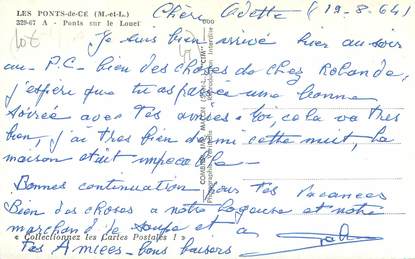 LES PONTS-de-CE (M.-et-L.)
329-67 A - Ponts sur le Louet
Chère Odette (19-8-64)
Je suis bien arrivé hier au soir
au P.C- bien des choses de chez Rolande,
j'espère que tu as passée une bonne
soirée avec tes amies. toi, cela va très
bien, j'ai très bien dormi cette nuit, la
maison était impecable.
Bonnes continuation pour tes vacances
Bien des choses a notre logeuse et notre
marchand de soupe et a
« Collectionnez les Cartes Postales ! »
tes Amiees - bons baisers
COMBIER IMP. MACON
"CIM"